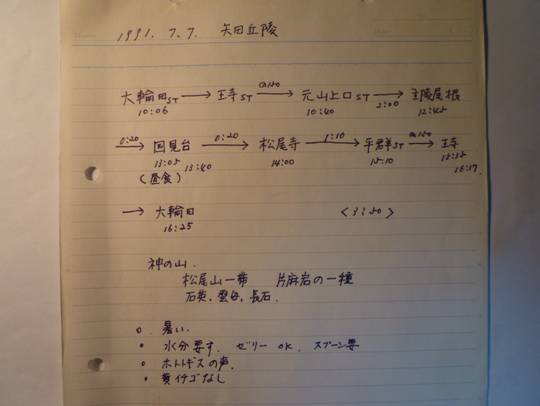 1991. 7. 7. 矢田丘陵
大輪田ST → 王寺ST → ¥150 元山上口ST → 2:00 主陵尾根
10:06 10:40 12:45
0:20 → 国見台 0:20 → 松尾寺 1:10 → 平群ST ¥150 → 王寺
13:05 13:40 14:00 15:10 16:17
(昼食)
→ 大輪田 <3:50>
16:25
神の山.
松尾山一帯 片麻岩の一種
石英, 雲母, 長石.
暑い.
水分要す. ゼリー OK. スプーン要
ホトトギスの声.
黄イチゴなし